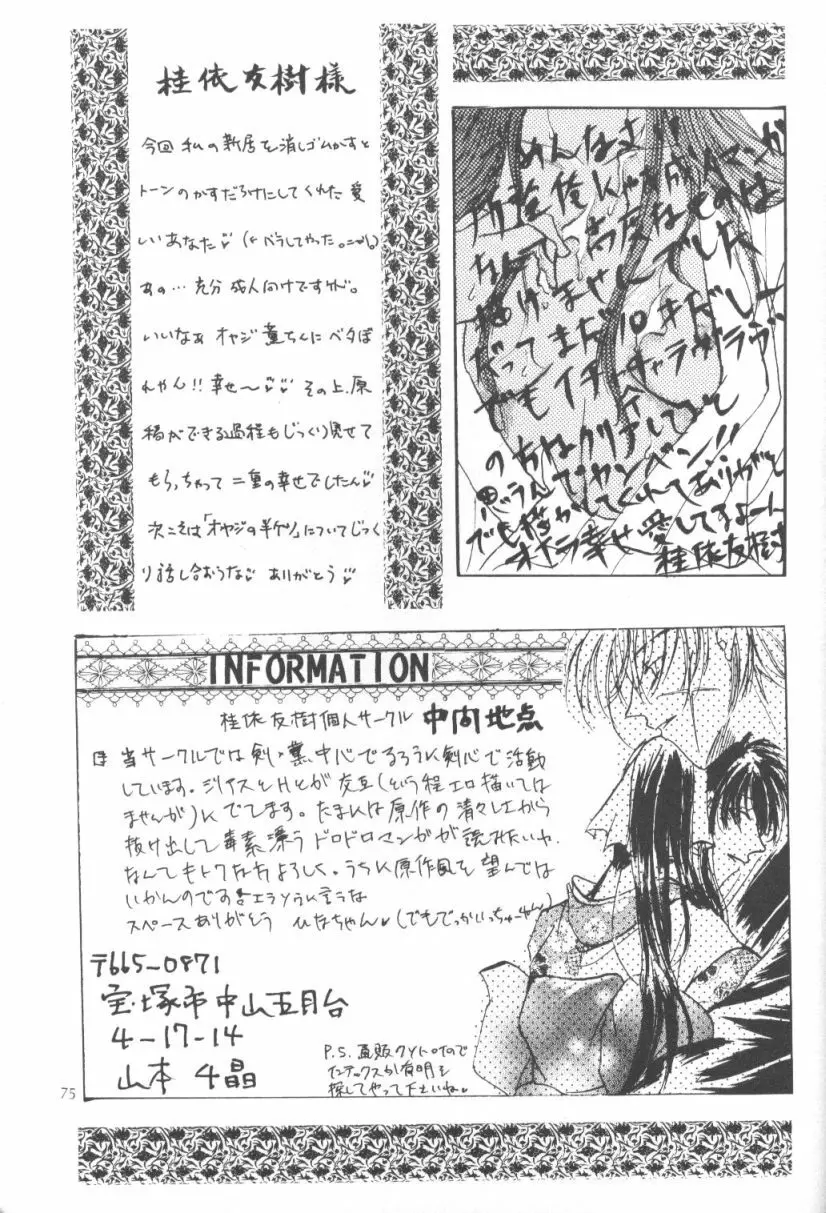 桂依友樹様
今回私の新居を消しゴムかすと
トーンのかすだらけにしてくれた愛
しいあなた♡(←バラしてやった。ニヤリ)
あの…充分成人向けですけど。
いいなぁオヤジ薫ちんにベタぼ
れやん!!幸せ〜♡♡その上、原
稿ができる過程もじっくり見せて
もらっちゃって二重の幸せでしたん♡
次こそは「オヤジの半ケツ」についてじっく
り話し合おうな♡ありがとう♡
ごめんなさい!!
所詮俺にゃ成人マンガ
なんて高度なものは
描けませんでした
だってまだ10才だしー
でもイチャイチャラヴラヴ
でも描かしてくれてありがと
オイラ幸せ愛してるよーん
桂依友樹
INFORMATION
桂依友樹個人サークル 中間地点
当サークルでは剣・薫中心でるろうに剣心で活動
しています。シリアスとHとが交互(という程エロ描いては
ませんが)にでてます。たまには原作の清々しエから
抜け出して毒素漂うドロドロマンガが読みたいわ
なんてもトクな方よろしく。うちに原作風を望んでは
いかんのです
スペースありがとう ひなちゃん♡(でもでっかいっちゅーねん)
〒665-0871
宝塚市中山五月台
4-17-14
山本 千晶
P.S. 通販
インデックスか有明を
探してやって下さいね♡
75